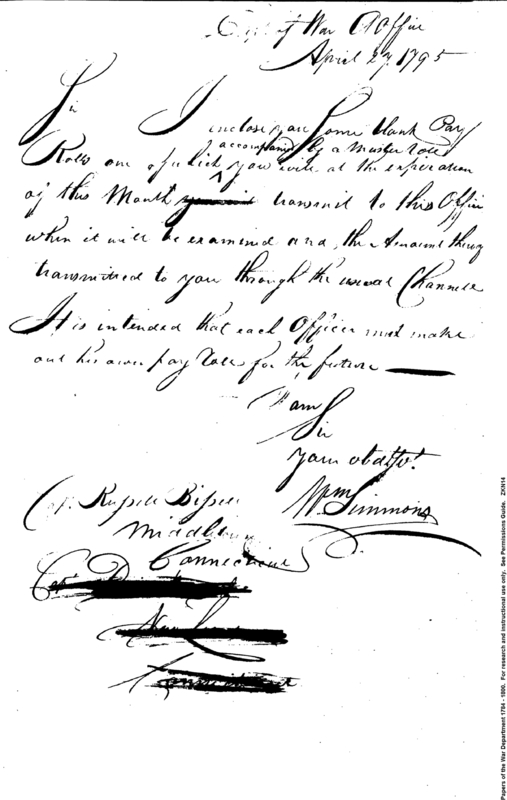 Dept of War A Office
April 27, 1795
Sir
I enclose you some blank Pay
accompanied by a muster role
Rolls one of which you will at the expiration
of this Month transmit to this Office
when it will be examined and, the Amount thereof
transmitted to you through the usual Channell
It is intended that each Officer must make
out his own pay Role for the future
I am
Sir
your obdt Svt
Wm Simmons
Capt Russell Bissell
Middletown
Connecticut
Papers of the War Department 1784 - 1800. For research and instructional use only. See Permissions Guide. ZKN14